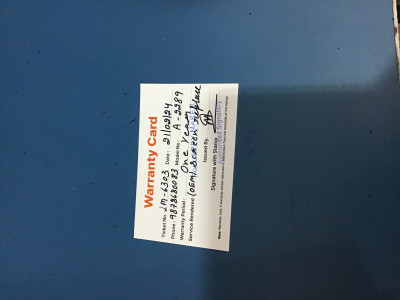 Warranty Card
Ticket No. LM-6303 Date: 21/02/24
Phone: 9878680083 Model No: A-2289
Warranty Period: One Year
Service Rendered (OEM) Screen Replace
Issued By:
Signature with Stamp
Authorised Signatory